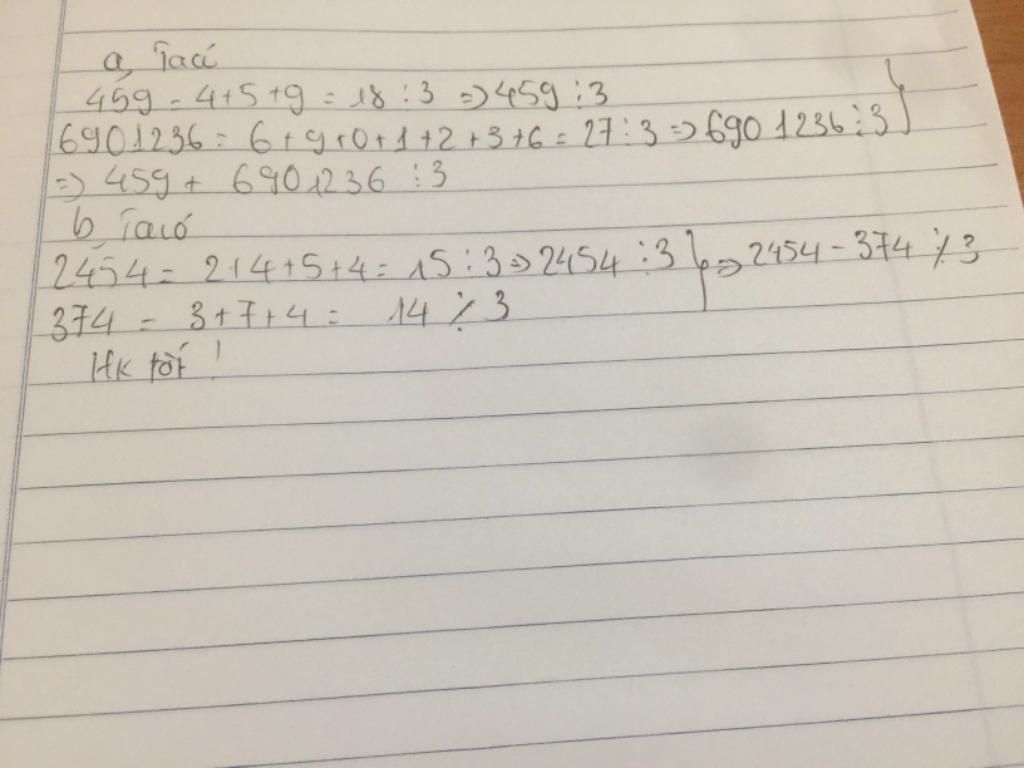 a, Ta có
459 = 4+5+9 = 18 ⋮ 3 => 459 ⋮ 3
6901236 = 6+9+0+1+2+3+6 = 27 ⋮ 3 => 6901236 ⋮ 3 }
=> 459 + 6901236 ⋮ 3
b, Ta có
2454 = 2+4+5+4 = 15 ⋮ 3 => 2454 ⋮ 3 } => 2454 - 374 ⋮̸ 3
374 = 3+7+4 = 14 ⋮̸ 3
Hk tốt !